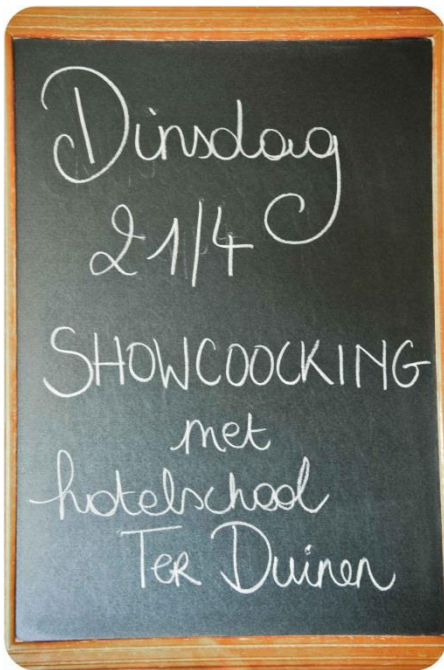 Dinsdag
21/4
SHOWCOOCKING
met
hotelschool
TER Duinen